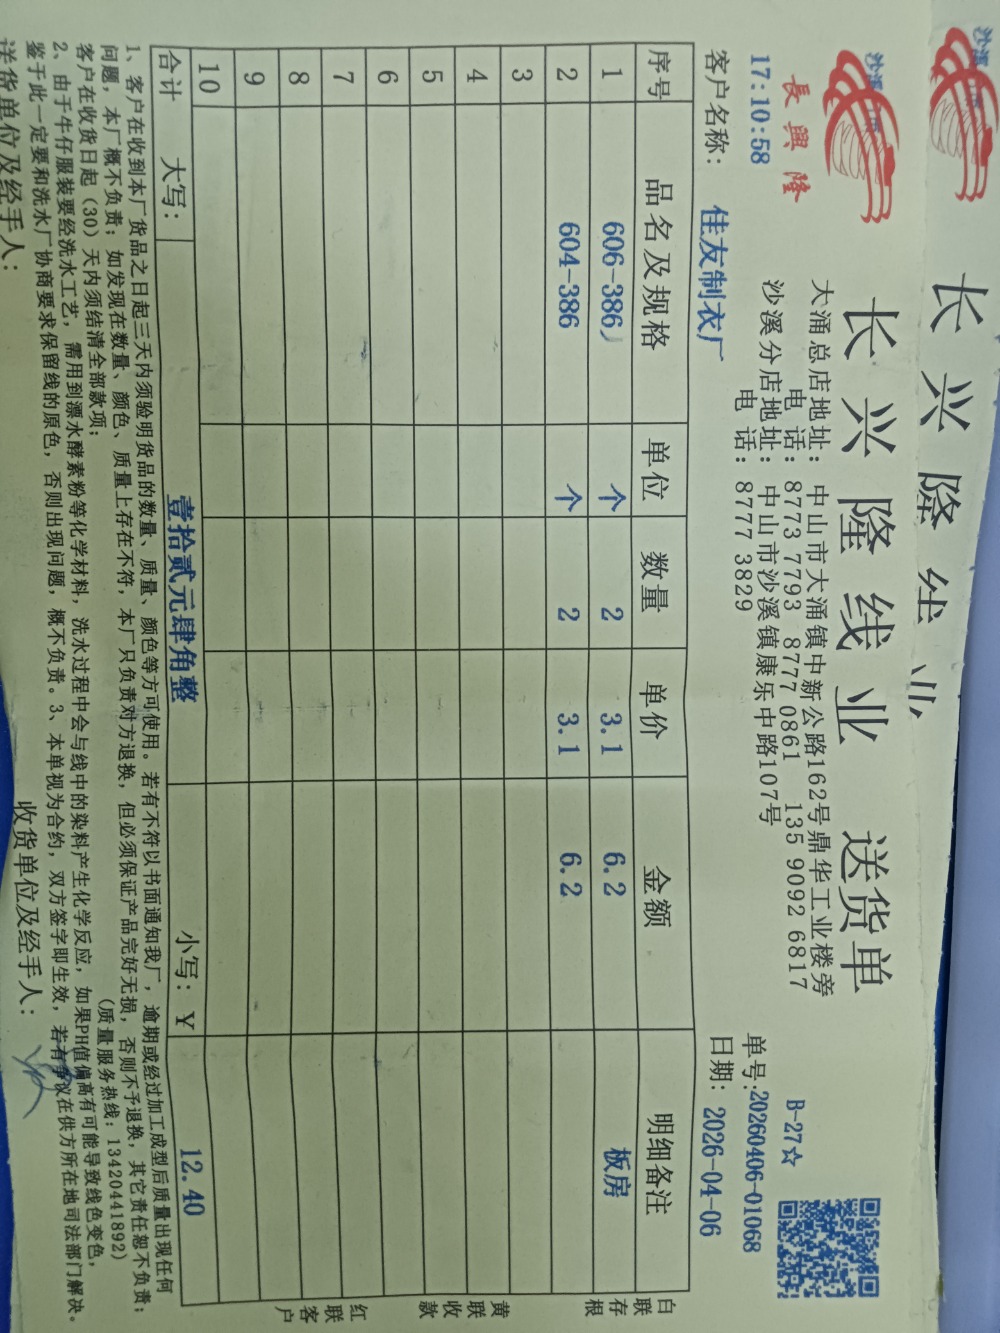 长兴隆线业
沙溪
長興隆
长兴隆线业 送货单
大涌总店地址：中山市大涌镇中新公路162号鼎华工业楼旁
电话：8773 7793 8777 0861 135 9092 6817
沙溪分店地址：中山市沙溪镇康乐中路107号
电话：8777 3829
17:10:58
B-27☆
单号:20260406-01068
客户名称： 佳友制衣厂
日期： 2026-04-06
序号 品名及规格 单位 数量 单价 金额 明细备注
1 606-386/ 个 2 3.1 6.2 板房
2 604-386 个 2 3.1 6.2
3
4
5
6
7
8
9
10
合计 大写： 壹拾贰元肆角整 小写：￥ 12.40
白联存根
黄联收款
红联客户
1、客户在收到本厂货品之日起三天内须验明货品的数量、质量、颜色等方可使用。若有不符以书面通知我厂，逾期或经过加工成型后质量出现任何
问题，本厂概不负责；如发现在数量、颜色、质量上存在不符，本厂只负责对方退换，但必须保证产品完好无损，否则不予退换，其它责任恕不负责；
客户在收货日起（30）天内须结清全部款项； （质量服务热线：13420441892）
2、由于牛仔服装要经洗水工艺，需用到漂水酵素粉等化学材料，洗水过程中会与线中的染料产生化学反应，如果PH值偏高有可能导致线色变色，
鉴于此一定要和洗水厂协商要求保留线的原色，否则出现问题，概不负责。3、本单视为合约，双方签字即生效，若有争议在供方所在地司法部门解决。
送货单位及经手人： 收货单位及经手人：